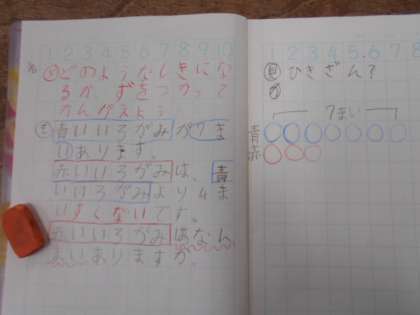 1 2 3 4 5 6 7 8 9 10
め どのようなしきにな
るか、ずをつかって
かんがえよう
青いいろがみが7ま
いあります。
赤いいろがみは、青
いいろがみより4ま
いすくないです。
赤いいろがみはなん
まいありますか。
1 2 3 4 5 6 7 8
ひきざん?
7まい
青
赤